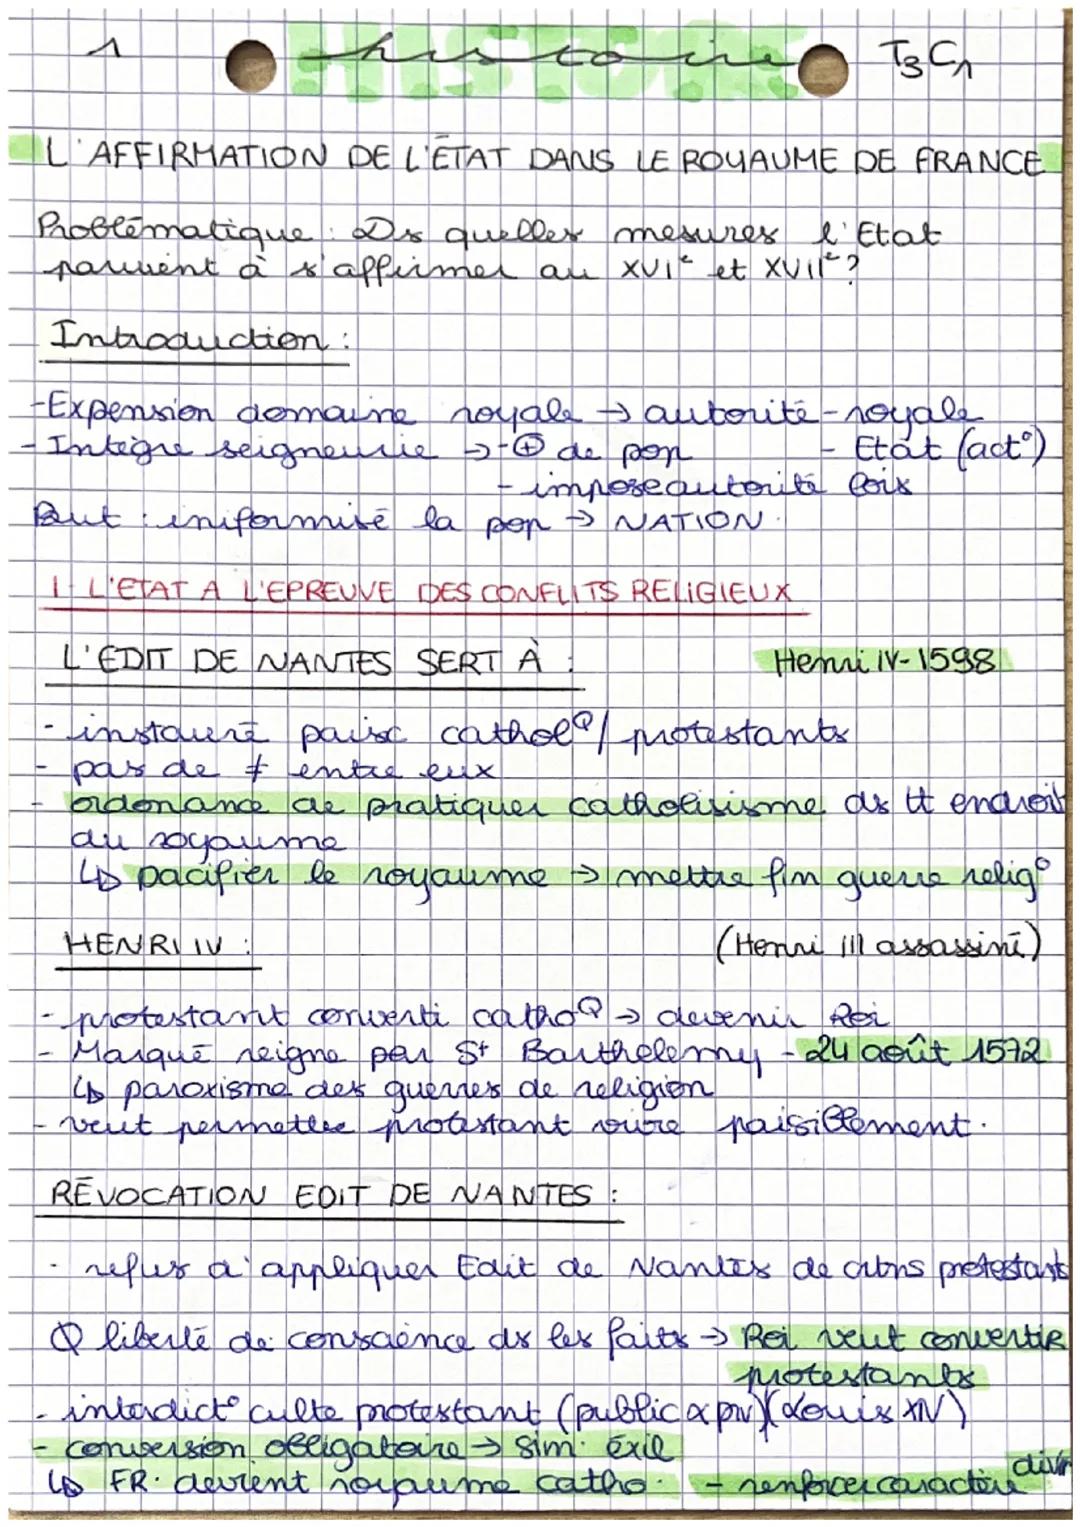 1 histoire T3C1
HISTOIRE
L'AFFIRMATION DE L'ÉTAT DANS LE ROYAUME DE FRANCE
Problématique : Ds quelles mesures l'Etat
parvient à s'affirmer au XVIe et XVIIe ?
Introduction :
-Expension domaine royale → autorité - royale
- Intègre seigneurie → - ⊕ de pop - Etat (act°)
- impose autorité lois
But : iniformisé la pop → NATION.
I- L'ETAT A L'EPREUVE DES CONFLITS RELIGIEUX
L'EDIT DE NANTES SERT À : Henri IV - 1598
- instauré paix cathol Q / protestants
- pas de ≠ entre eux
- ordonance de pratiquer catholisisme ds tt endroit
du royaume
↳ pacifier le royaume → mettre fin guerre relig°
HENRI IV : (Henri III assassiné)
- protestant converti cathoQ → devenir Roi
- Marqué reigne par St Barthélemy - 24 août 1572
↳ paroxisme des guerres de religion
- veut permettre protestant vivre paisiblement.
RÉVOCATION EDIT DE NANTES :
- refus d'appliquer Edit de Nantes de crtns protestants
Q liberté de conscience ds les faits → Roi veut convertir
protestants
- interdict° culte protestant (public & pv) (Louis XIV)
- conversion obligatoire → sim. éxil
↳ FR. devient royaume catho. - renforcer caractère divin